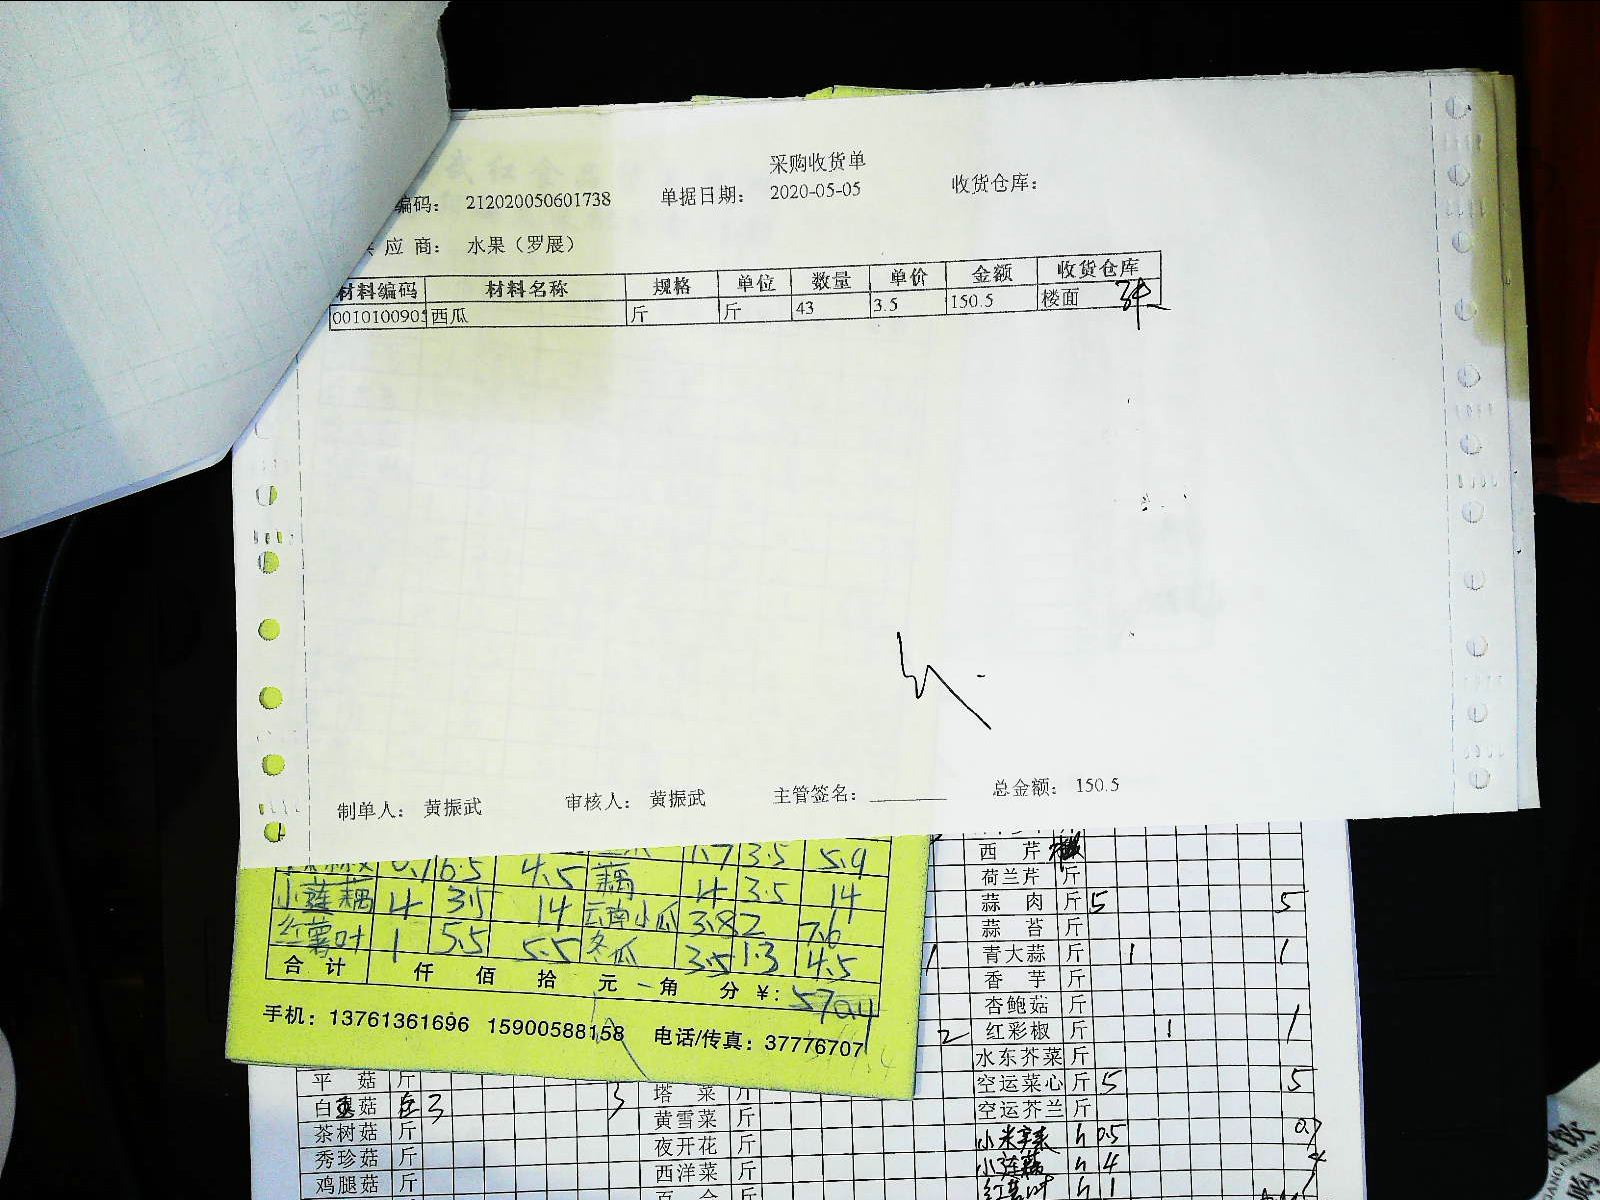 采购收货单
编码： 212020050601738 单据日期： 2020-05-05 收货仓库：
应 商： 水果（罗展）
材料编码 材料名称 规格 单位 数量 单价 金额 收货仓库
001010090 西瓜 斤 斤 43 3.5 150.5 楼面
制单人： 黄振武 审核人： 黄振武 主管签名： 总金额： 150.5
6.5 4.5 1.7 3.5 5.9
小莲藕 4 3.5 14 藕 4 3.5 14
红薯叶 1 5.5 5.5 云南小瓜 3.8 2 7.6
冬瓜 3.5 1.3 4.5
合 计 仟 佰 拾 元 角 分 ¥: 570.4
手机：13761361696 15900588158 电话/传真：37776707
西 芹
荷兰芹 斤
蒜 肉 斤 5 5
蒜 苔 斤
青大蒜 斤 1 1
香 芋 斤
杏鲍菇 斤
红彩椒 斤 1 1
水东芥菜 斤
空运菜心 斤 5 5
空运芥兰 斤
小米辣 0.5 0.7
小莲藕 4 4
红薯叶 1
平 菇 斤 塔 菜 斤
白 菇 3 3 黄雪菜 斤
茶树菇 斤 夜开花 斤
秀珍菇 斤 西洋菜 斤
鸡腿菇 斤 百 合 斤